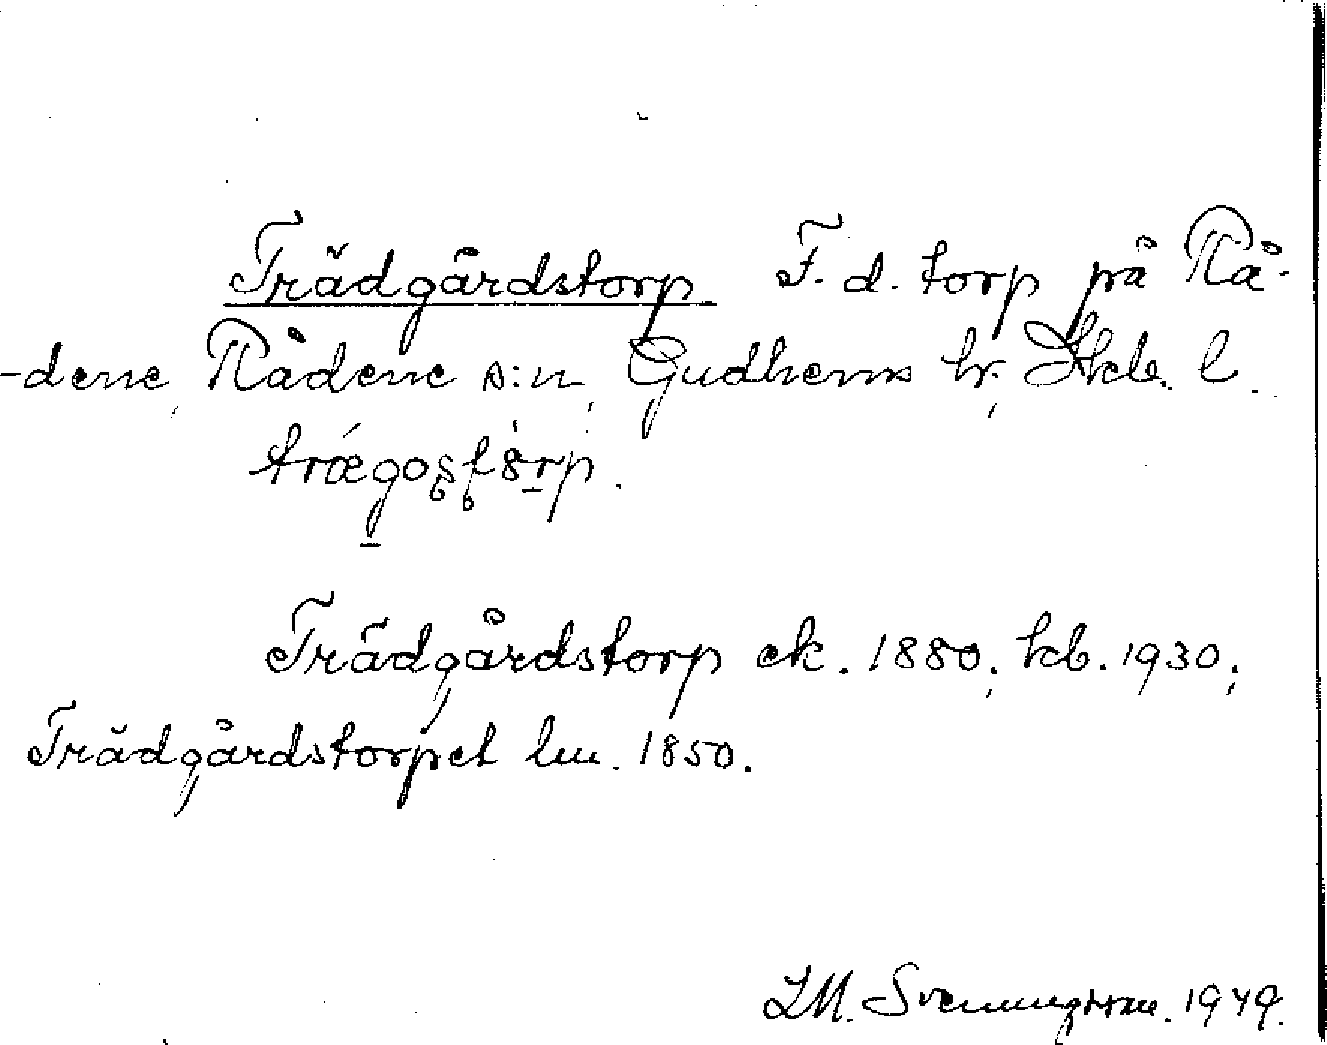 Trädgårdstorp F. d. torp på Rå-
-dene, Rådene s:n, Gudhems hr, Skb. l.
Trädgårdstorp ek. 1880; kb. 1930;
Trädgårdstorpet lm. 1850.
LM. Svenungsson. 1949.